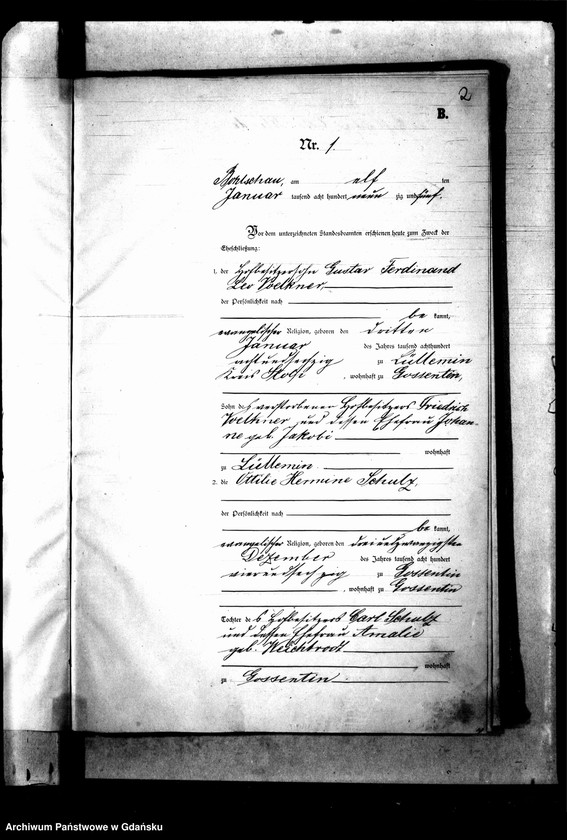 2
B.
Nr. 1
Bohlschau, am elf ten
Januar tausend acht hundert neun zig und fünf.
Vor dem unterzeichneten Standesbeamten erschienen heute zum Zweck der
Eheschließung:
1. der Hofbesitzersohn Gustav Ferdinand
Leo Voelkner,
der Persönlichkeit nach
be kannt,
evangelischer Religion, geboren den dritten
Januar des Jahres tausend achthundert
achtundsechzig zu Lüllemin
Kreis Stolp, wohnhaft zu Gossentin,
Sohn des verstorbenen Hofbesitzers Friedrich
Voelkner und dessen Ehefrau Johan-
ne geb. Jakobi
wohnhaft
zu Lüllemin
2. die Ottilie Hermine Schulz,
der Persönlichkeit nach
be kannt,
evangelischer Religion, geboren den dreiundzwanzigsten
Dezember des Jahres tausend acht hundert
vierundsechzig zu Gossentin
, wohnhaft zu Gossentin
Tochter des Hofbesitzers Carl Schulz
und dessen Ehefrau Amalie
geb.
wohnhaft
zu Gossentin
Archiwum Państwowe w Gdańsku